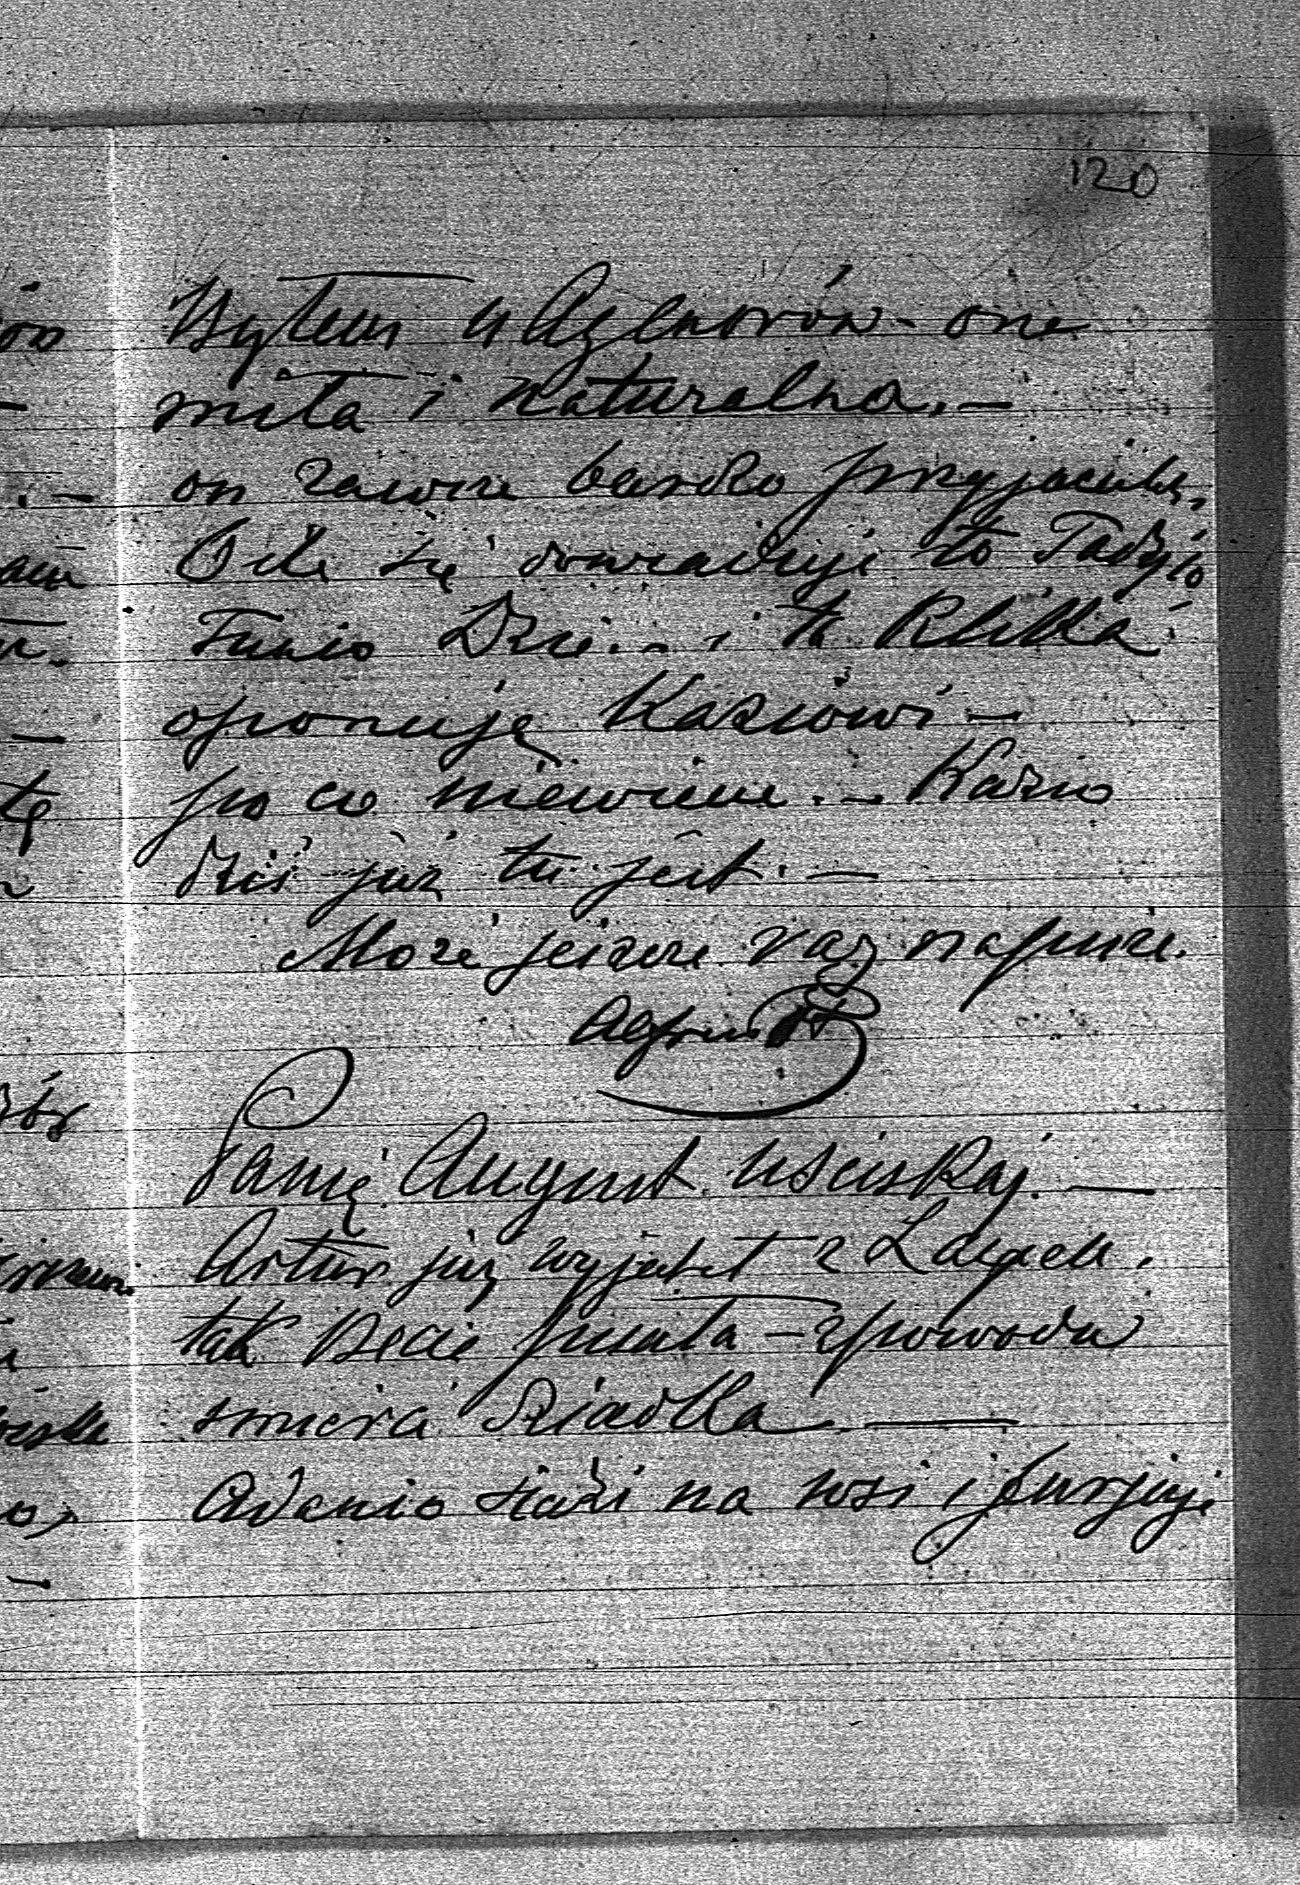 120
Byłem u Agenorów – ona
miła i naturalna. –
on zawsze bardzo przyjacielski,
O ile się dowiaduję to Tadzio
Funio Dzie... i ta klika
oponują Kaziowi –
po co niewiem. – Kazio
dziś już tu jest. –
Może jeszcze raz napiszę.
Alfred
Panią August uściskaj. –
Artur już wyjechał z
tak Becie pisała – z powodu
śmierci Dziadka –
Adamio siedzi na wsi i